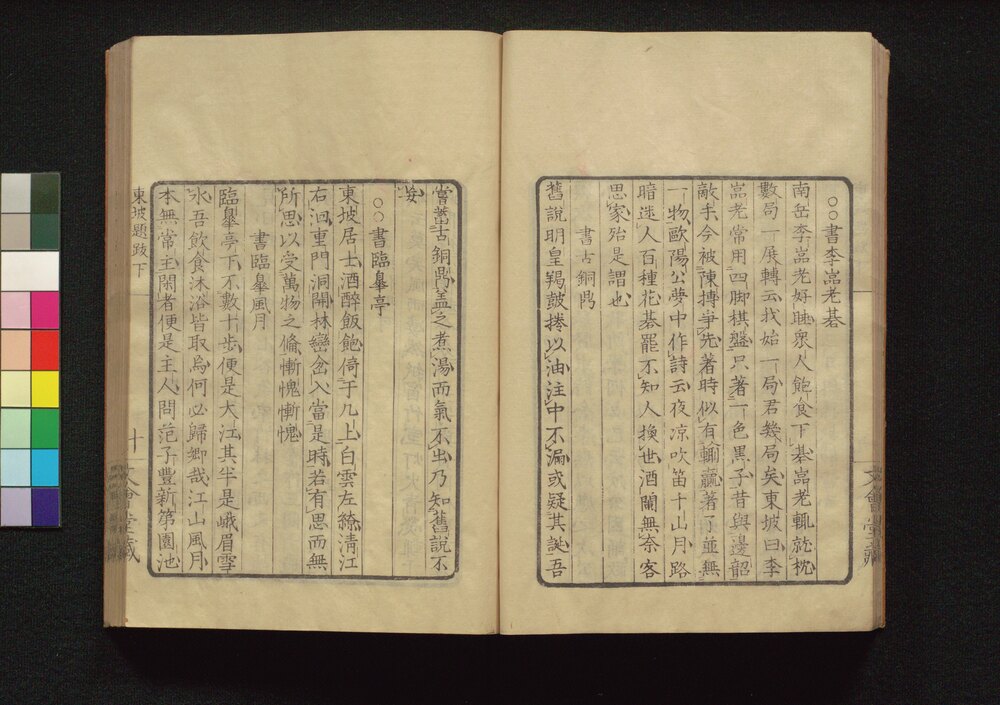 ○○書李嵓老棊
南岳李嵓老好睡衆人飽食下棊嵓老輒就枕
數局一展轉云我始一局君幾局矣東坡曰李
嵓老常用四脚棋盤只著一色黑子昔與邊韶
敵手今被陳摶爭先著時似有輸贏著了並無
一物歐陽公夢中作詩云夜凉吹笛千山月路
暗迷人百種花棊罷不知人換世酒闌無奈客
思家殆是謂也
書古銅鼎
舊說明皇羯鼓捲以油注中不漏或疑其誕吾
嘗蓄古銅鼎盖之煮湯而氣不出乃知舊說不
妄
○○書臨臯亭
東坡居士酒醉飯飽倚于几上白雲左繚淸江
右洄重門洞開林巒岔入當是時若有思而無
所思以受萬物之備慚愧慚愧
書臨臯風月
臨臯亭下不數十步便是大江其半是峨眉雪
水吾飲食沐浴皆取焉何必歸鄉哉江山風月
本無常主閑者便是主人問范子豐新第園池
東坡題跋下
十
文會堂藏
文會堂藏